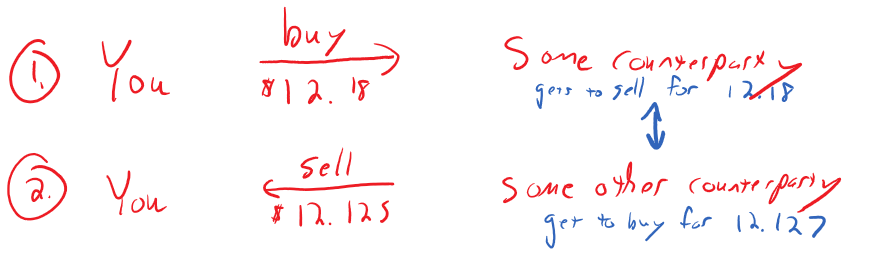 1. You buy $12.18 Some counterparty
gets to sell for 12.18
2. You sell $12.125 Some other counterparty
get to buy for 12.127